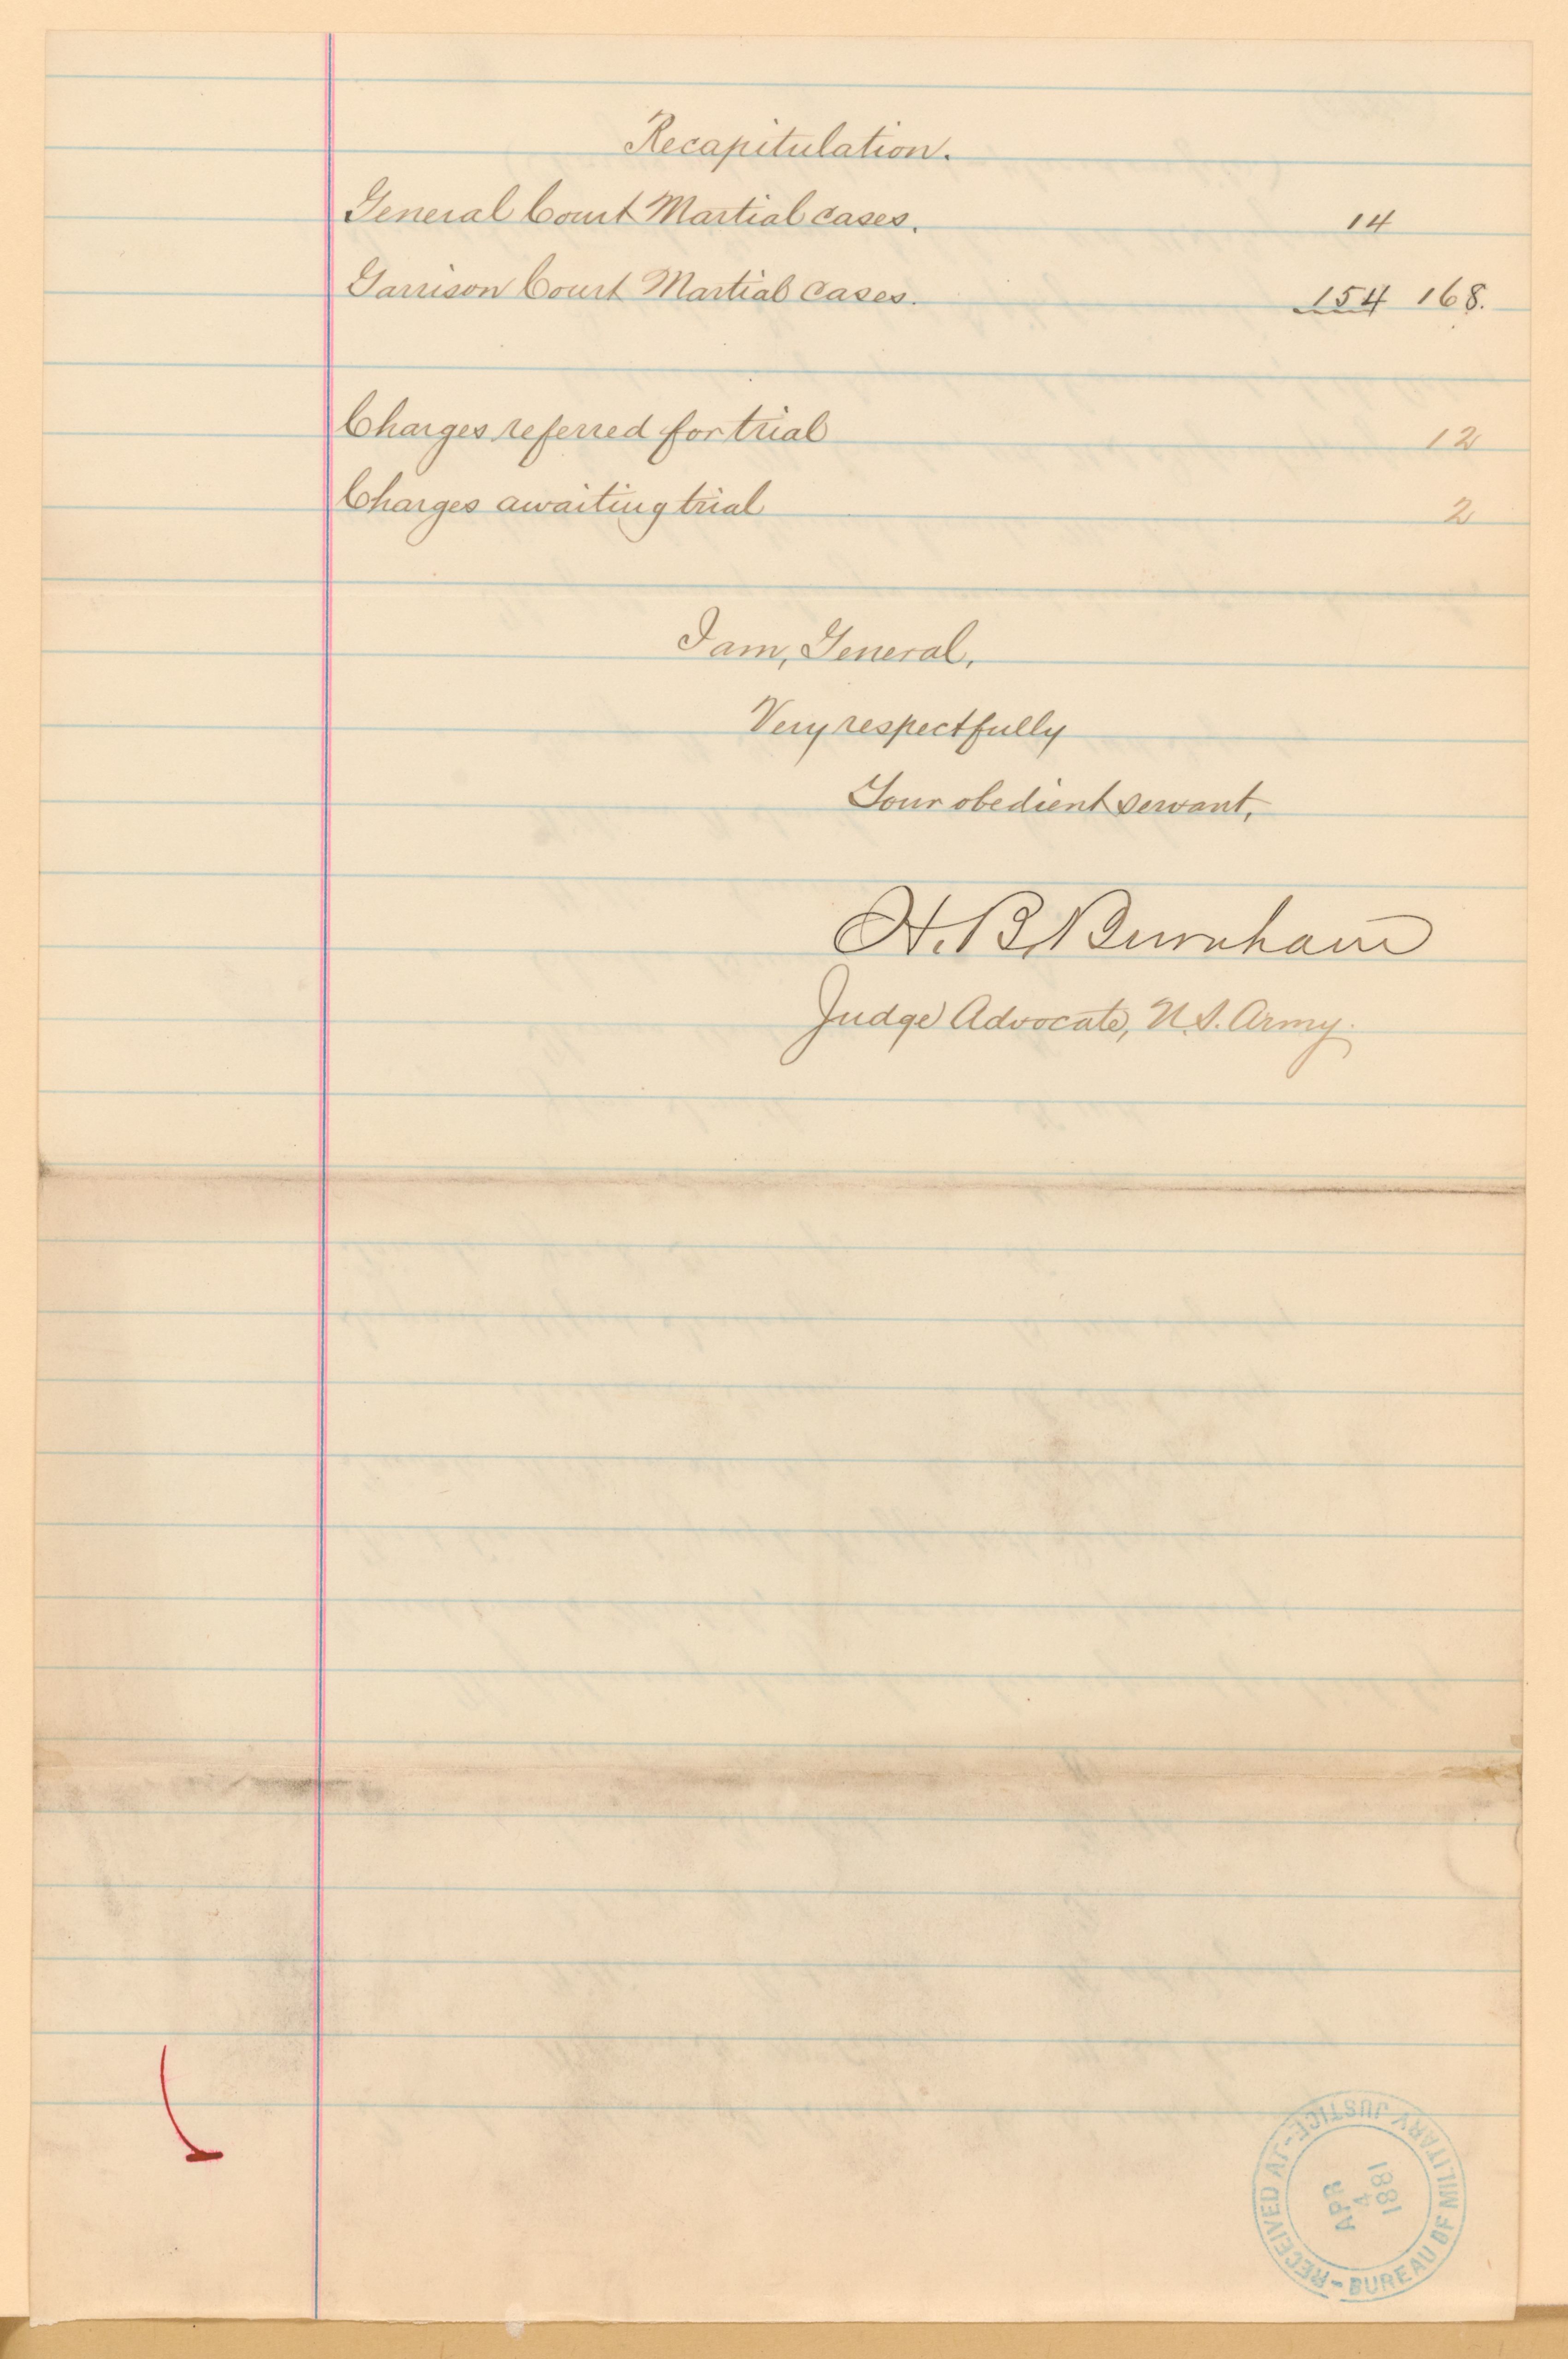 Recapitulation.
General Court Martial cases. 14
Garrison Court Martial cases. 154 168.
Charges referred for trial 12
Charges awaiting trial 2
I am, General,
Very respectfully
Your obedient servant,
H. B. Burnham
Judge Advocate, U.S. Army.
RECEIVED AT - BUREAU OF MILITARY JUSTICE -
APR
4
1881